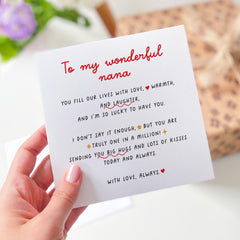 To my wonderful
nana
YOU FILL OUR LIVES WITH LOVE, WARMTH,
AND LAUGHTER,
AND I'M SO LUCKY TO HAVE YOU.
I DON'T SAY IT ENOUGH, BUT YOU ARE
TRULY ONE IN A MILLION!
SENDING YOU BIG HUGS AND LOTS OF KISSES
TODAY AND ALWAYS.
WITH LOVE, ALWAYS.